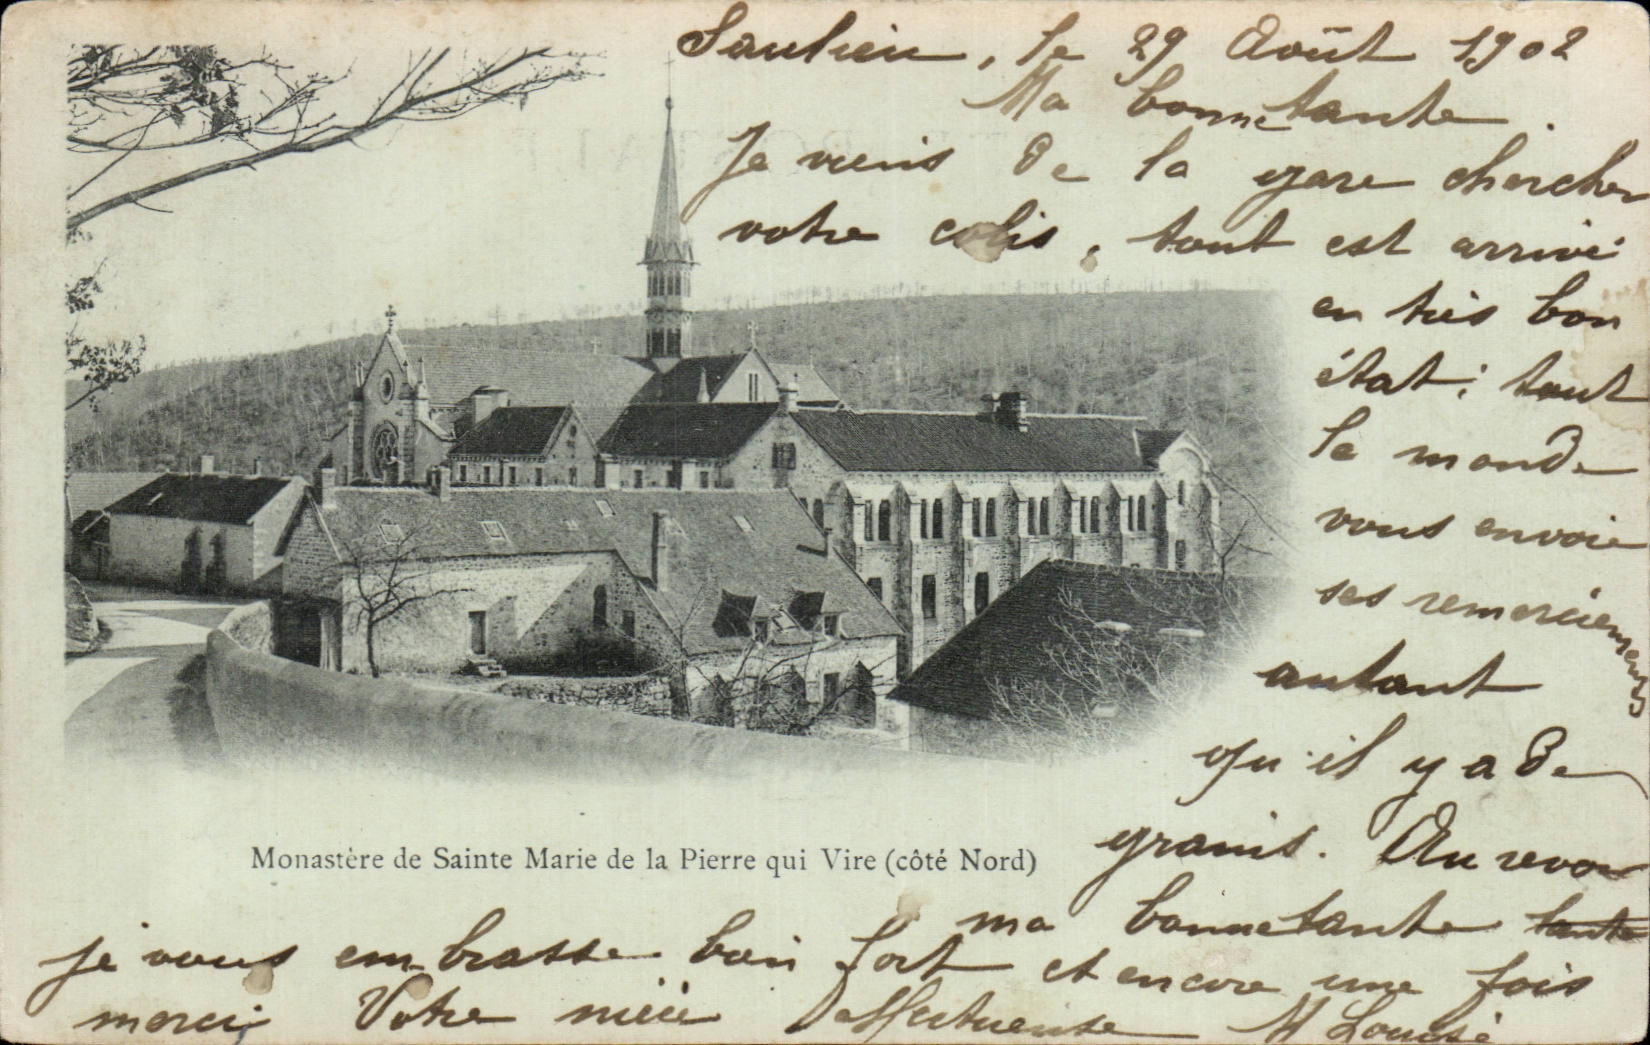 Saulieu, le 29 Août 1902
Ma bonne tante.
Je viens de la gare chercher
votre colis, tout est arrivé
en très bon
état; tout
le monde
vous envoie
ses remerciements
autant
qu'il y a de
grains. Au revoir
ma bonne tante tante
je vous embrasse bien fort et encore une fois
merci Votre nièce affectueuse M Louise
Monastère de Sainte Marie de la Pierre qui Vire (côté Nord)